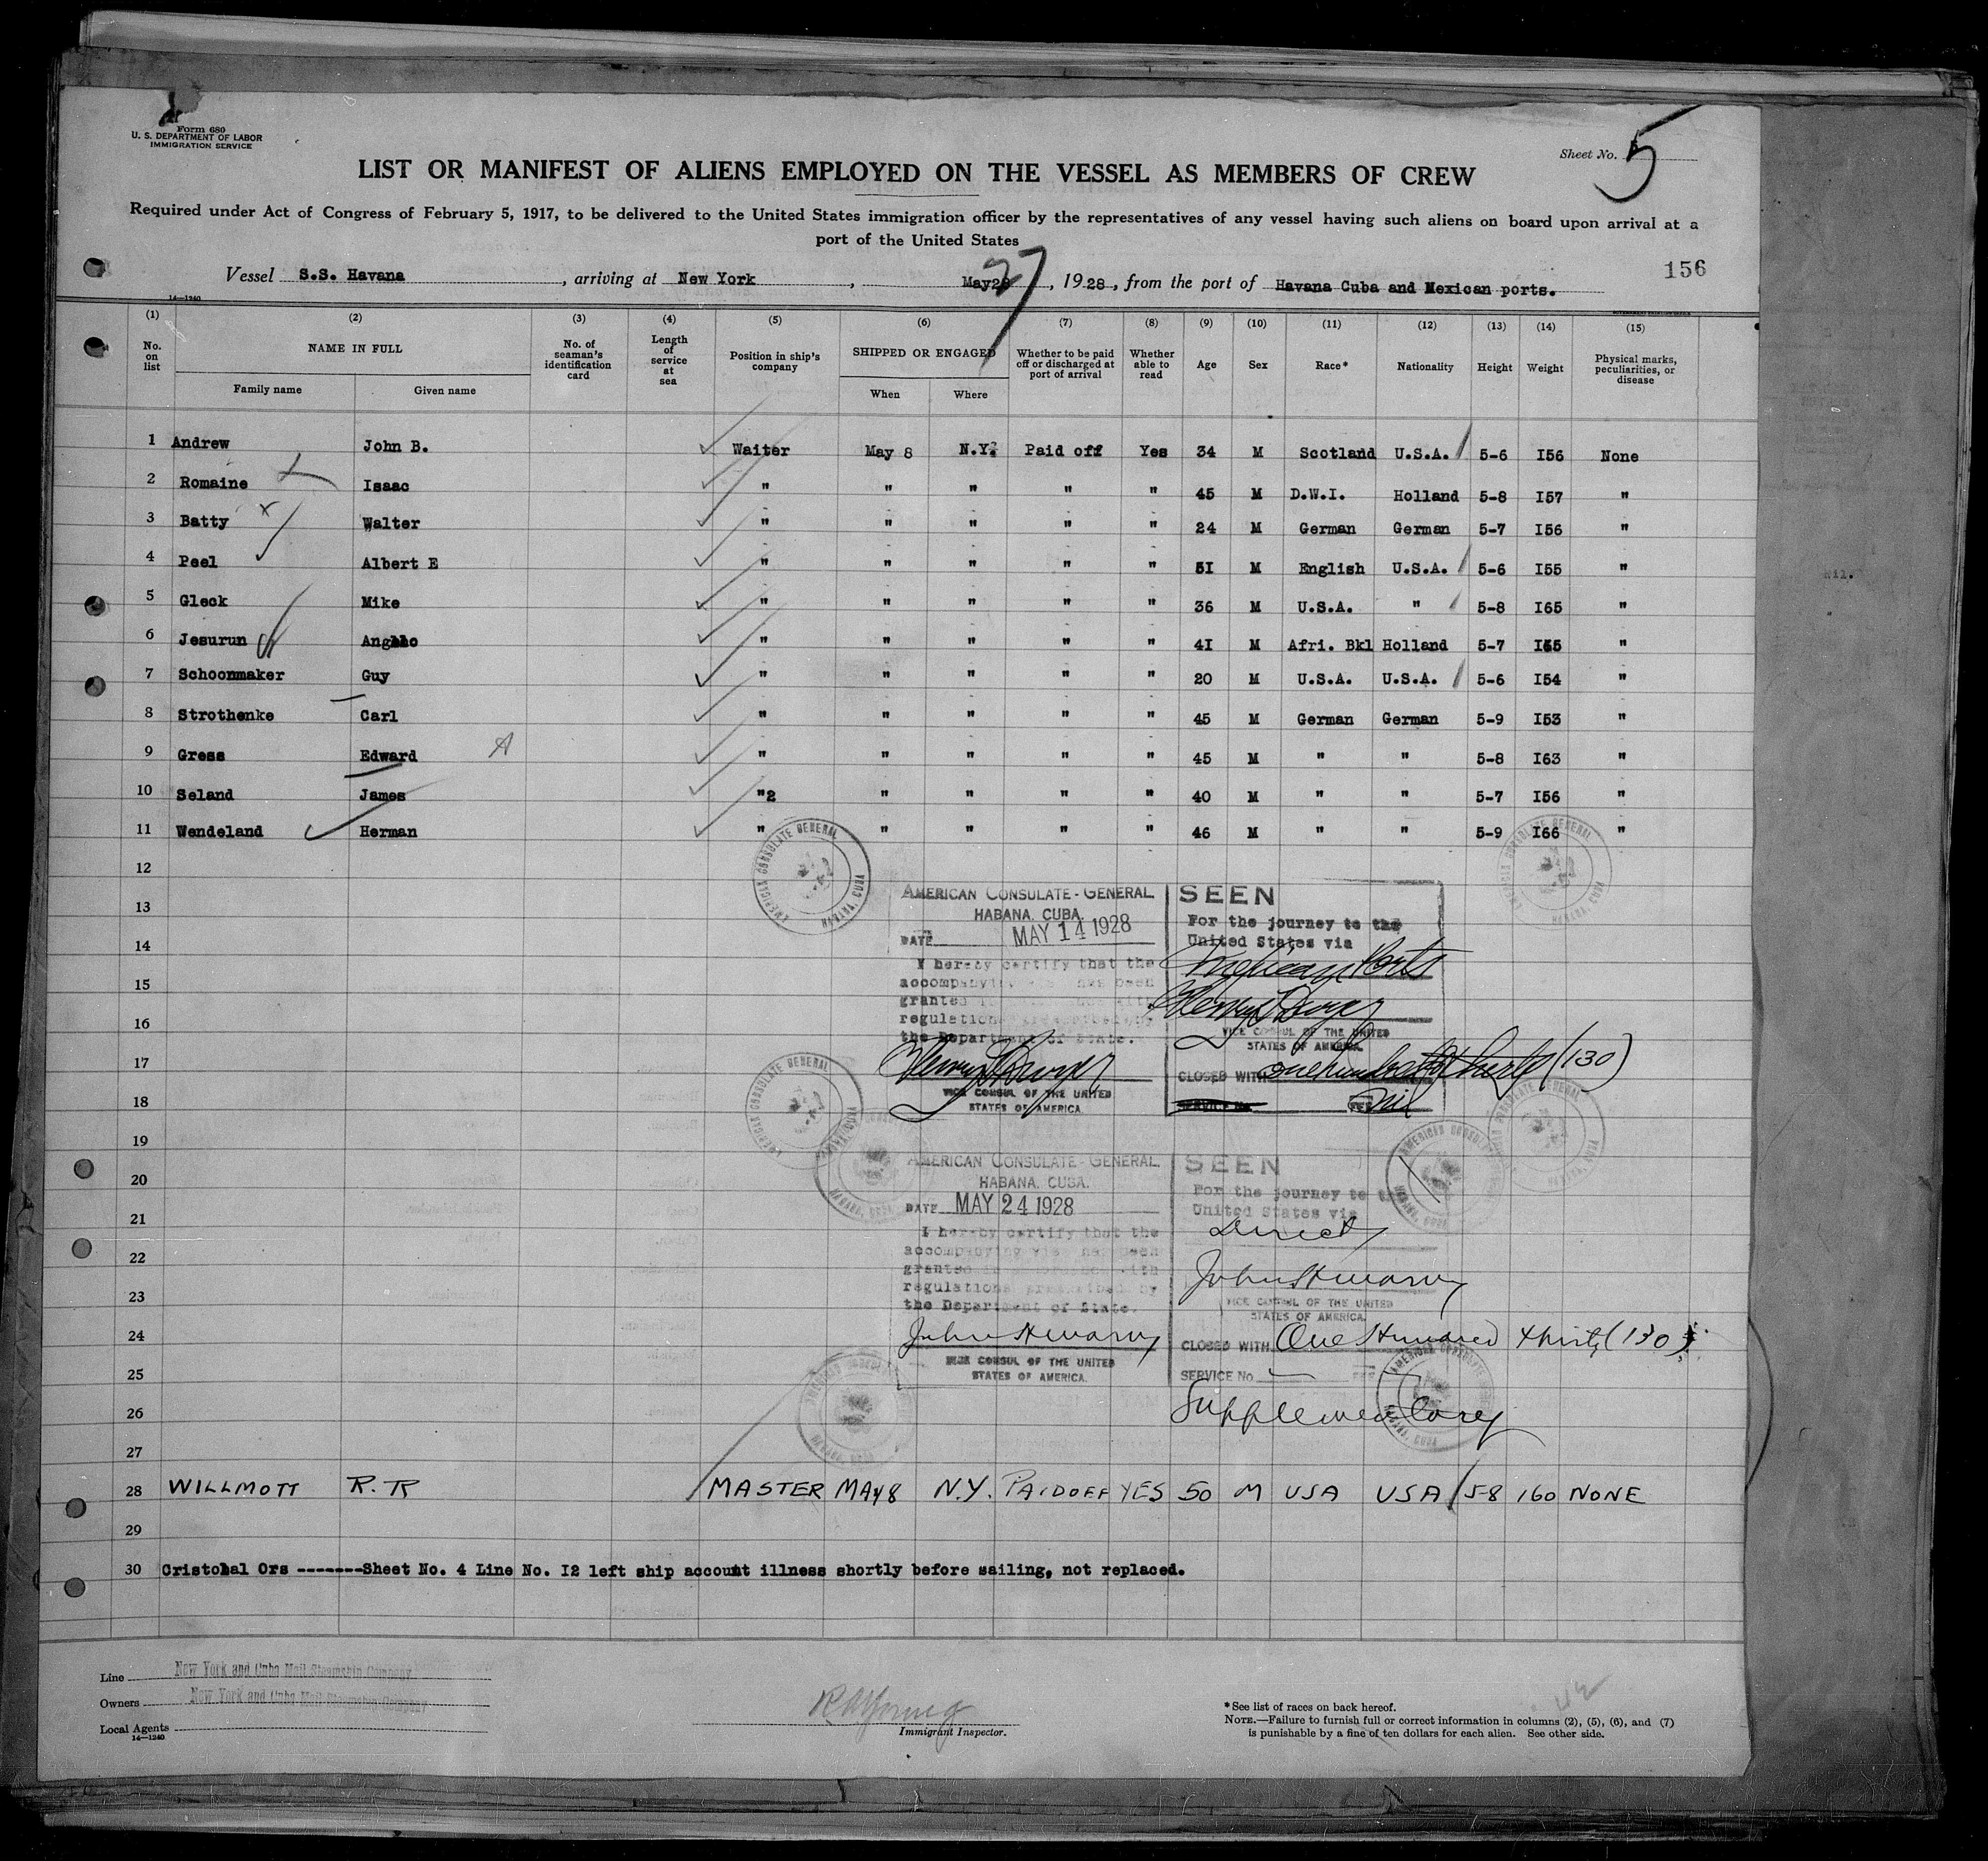 Form 680
U. S. DEPARTMENT OF LABOR
IMMIGRATION SERVICE
Sheet No. 5
LIST OR MANIFEST OF ALIENS EMPLOYED ON THE VESSEL AS MEMBERS OF CREW
Required under Act of Congress of February 5, 1917, to be delivered to the United States immigration officer by the representatives of any vessel having such aliens on board upon arrival at a
port of the United States
156
Vessel S.S. Havana, arriving at New York, May 27, 1928, from the port of Havana Cuba and Mexican ports.
14—1240
(1) (2) (3) (4) (5) (6) (7) (8) (9) (10) (11) (12) (13) (14) (15)
No. on list NAME IN FULL No. of seaman's identification card Length of service at sea Position in ship's company SHIPPED OR ENGAGED Whether to be paid off or discharged at port of arrival Whether able to read Age Sex Race* Nationality Height Weight Physical marks, peculiarities, or disease
Family name Given name When Where
1 Andrew John B. Waiter May 8 N.Y. Paid off Yes 34 M Scotland U.S.A. 5-6 I56 None
2 Romaine Isaac " " " " " 45 M D.W.I. Holland 5-8 I57 "
3 Batty Walter " " " " " 24 M German German 5-7 I56 "
4 Peel Albert E " " " " " 5I M English U.S.A. 5-6 I55 "
5 Gleck Mike " " " " " 36 M U.S.A. " 5-8 I65 "
6 Jesurun " " " " " 4I M Afri. Bkl Holland 5-7 "
7 Schoonmaker Guy " " " " " 20 M U.S.A. U.S.A. 5-6 I54 "
8 Strothenke Carl " " " " " 45 M German German 5-9 I53 "
9 Gress Edward A " " " " " 45 M " " 5-8 I63 "
10 Seland James "2 " " " " 40 M " " 5-7 I56 "
11 Wendeland Herman " " " " " 46 M " " 5-9 I66 "
12
13
14
15
16
17
18
19
20
21
22
23
24
25
26
27
AMERICAN CONSULATE GENERAL
HABANA, CUBA
AMERICAN CONSULATE-GENERAL
HABANA, CUBA.
DATE MAY 14 1928
I hereby certify that the
accompanying visa has been
granted in accordance with
regulations prescribed by
the Department of State.
VICE CONSUL OF THE UNITED
STATES OF AMERICA
SEEN
For the journey to the
United States via
Mexican Ports
VICE CONSUL OF THE UNITED
STATES OF AMERICA
CLOSED WITH one hundred thirty (130)
SERVICE No. FEE nil
AMERICAN CONSULATE-GENERAL
HABANA, CUBA.
DATE MAY 24 1928
I hereby certify that the
accompanying visa has been
granted in accordance with
regulations prescribed by
the Department of State.
VICE CONSUL OF THE UNITED
STATES OF AMERICA.
SEEN
For the journey to the
United States via
Direct
VICE CONSUL OF THE UNITED
STATES OF AMERICA.
CLOSED WITH One Hundred thirty (130)
SERVICE No. FEE
Supplementary
28 WILLMOTT R.R MASTER MAY 8 N.Y. PAID OFF YES 50 M USA USA 5-8 160 NONE
29
30 Cristobal Ors -------Sheet No. 4 Line No. I2 left ship account illness shortly before sailing, not replaced.
Line New York and Cuba Mail Steamship Company
Owners New York and Cuba Mail Steamship Company
Local Agents
14—1240
R A Young
Immigrant Inspector.
*See list of races on back hereof.
NOTE.—Failure to furnish full or correct information in columns (2), (5), (6), and (7)
is punishable by a fine of ten dollars for each alien. See other side.
nil.